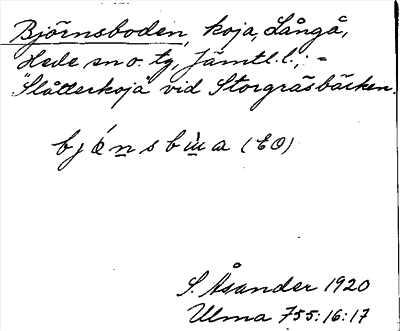 Björnsboden, koja, Långå,
Hede sn o. tg, Jämtl. l.; -
"Slåtterkoja" vid Storgräsbäcken.
(EO)
S. Åsander 1920
Ulma 755:16:17